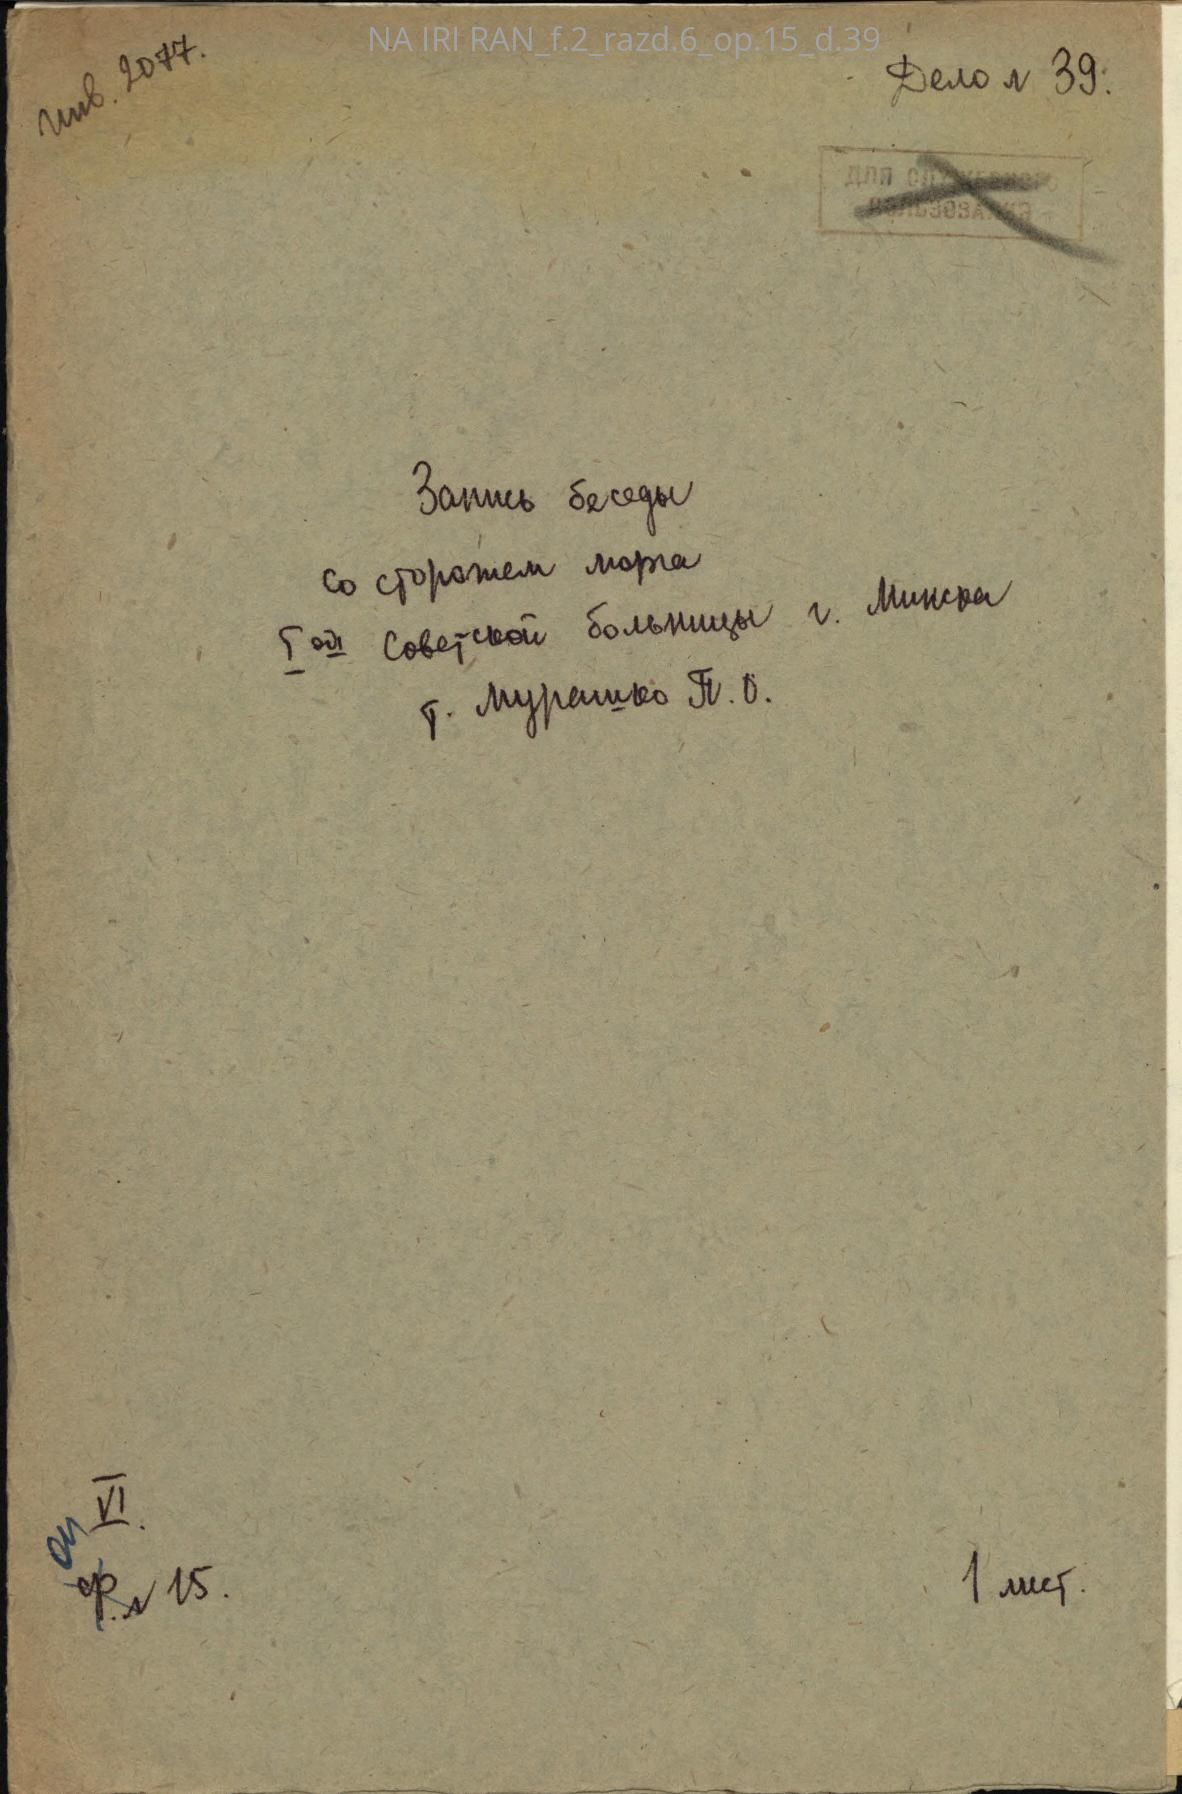 NA IRI RAN_f.2_razd.6_op.15_d.39
инв. 2077.
Дело № 39.
ДЛЯ СЛУЖЕБНОГО
ПОЛЬЗОВАНИЯ
Запись беседы
со сторожем морга
Iой Советской больницы г. Минска
т. Мурашко П. О.
VI.
оп
ф. № 15.
1 лист.